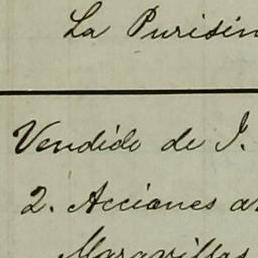 La Purisin
Vendido de J.
2. Acciones a
Maravillas